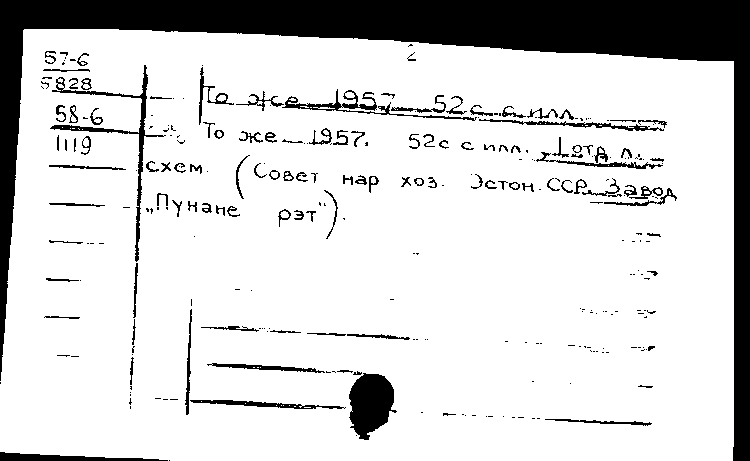 2
57-6
5828
То же 1957 52 с с илл.
58-6
1119
То же 1957. 52 с с илл., 1 отд. л.
схем. (Совет нар хоз. Эстон. ССР. Завод
„Пунане рэт").